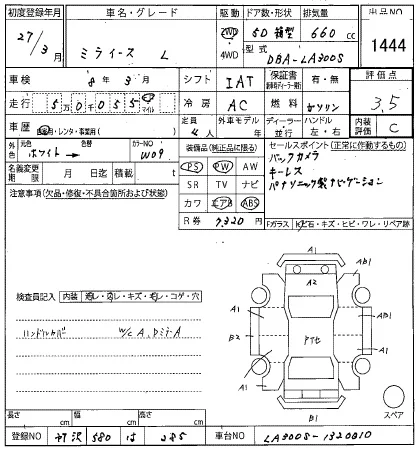 初度登録年月 車名・グレード 駆動 ドア数・形状 排気量 出品NO
27/3月 ミライース L 2WD 4WD 5D 箱型 660 cc 1444
型式 DBA-LA300S
車検 8年 3月 シフト IAT 保証書 有・無 評価点
走行 5万0千055 キロ マイル 冷房 AC 燃料 ガソリン 3,5
車歴 自家用・レンタ・事業用( ) 定員 4人 外車モデル年 ディーラー 並行 ハンドル 左・右 内装評価 C
外色 ホワイト → 色替 カラーNO W09
装備品(純正品に限る) セールスポイント(正常に作動するもの)
名義変更期限 月 日迄 積載 t
PS PW AW バックカメラ
注意事項(欠品・修復・不具合箇所および状態)
SR TV ナビ キーレス
カワ エアB ABS パナソニック製ナビゲーション
R券 7,320 Fガラス 石・キズ・ヒビ・ワレ・リペア跡
A1
AB1
A2
検査員記入 内装 汚レ・コゲ・穴
A1
A1
ハンドルカバー W/c A、DミラーA
B2
A1
AB1
A1
B1
スペア
長さ cm 幅 cm 高さ cm
登録NO 580 は 285 車台NO LA300S-1320810